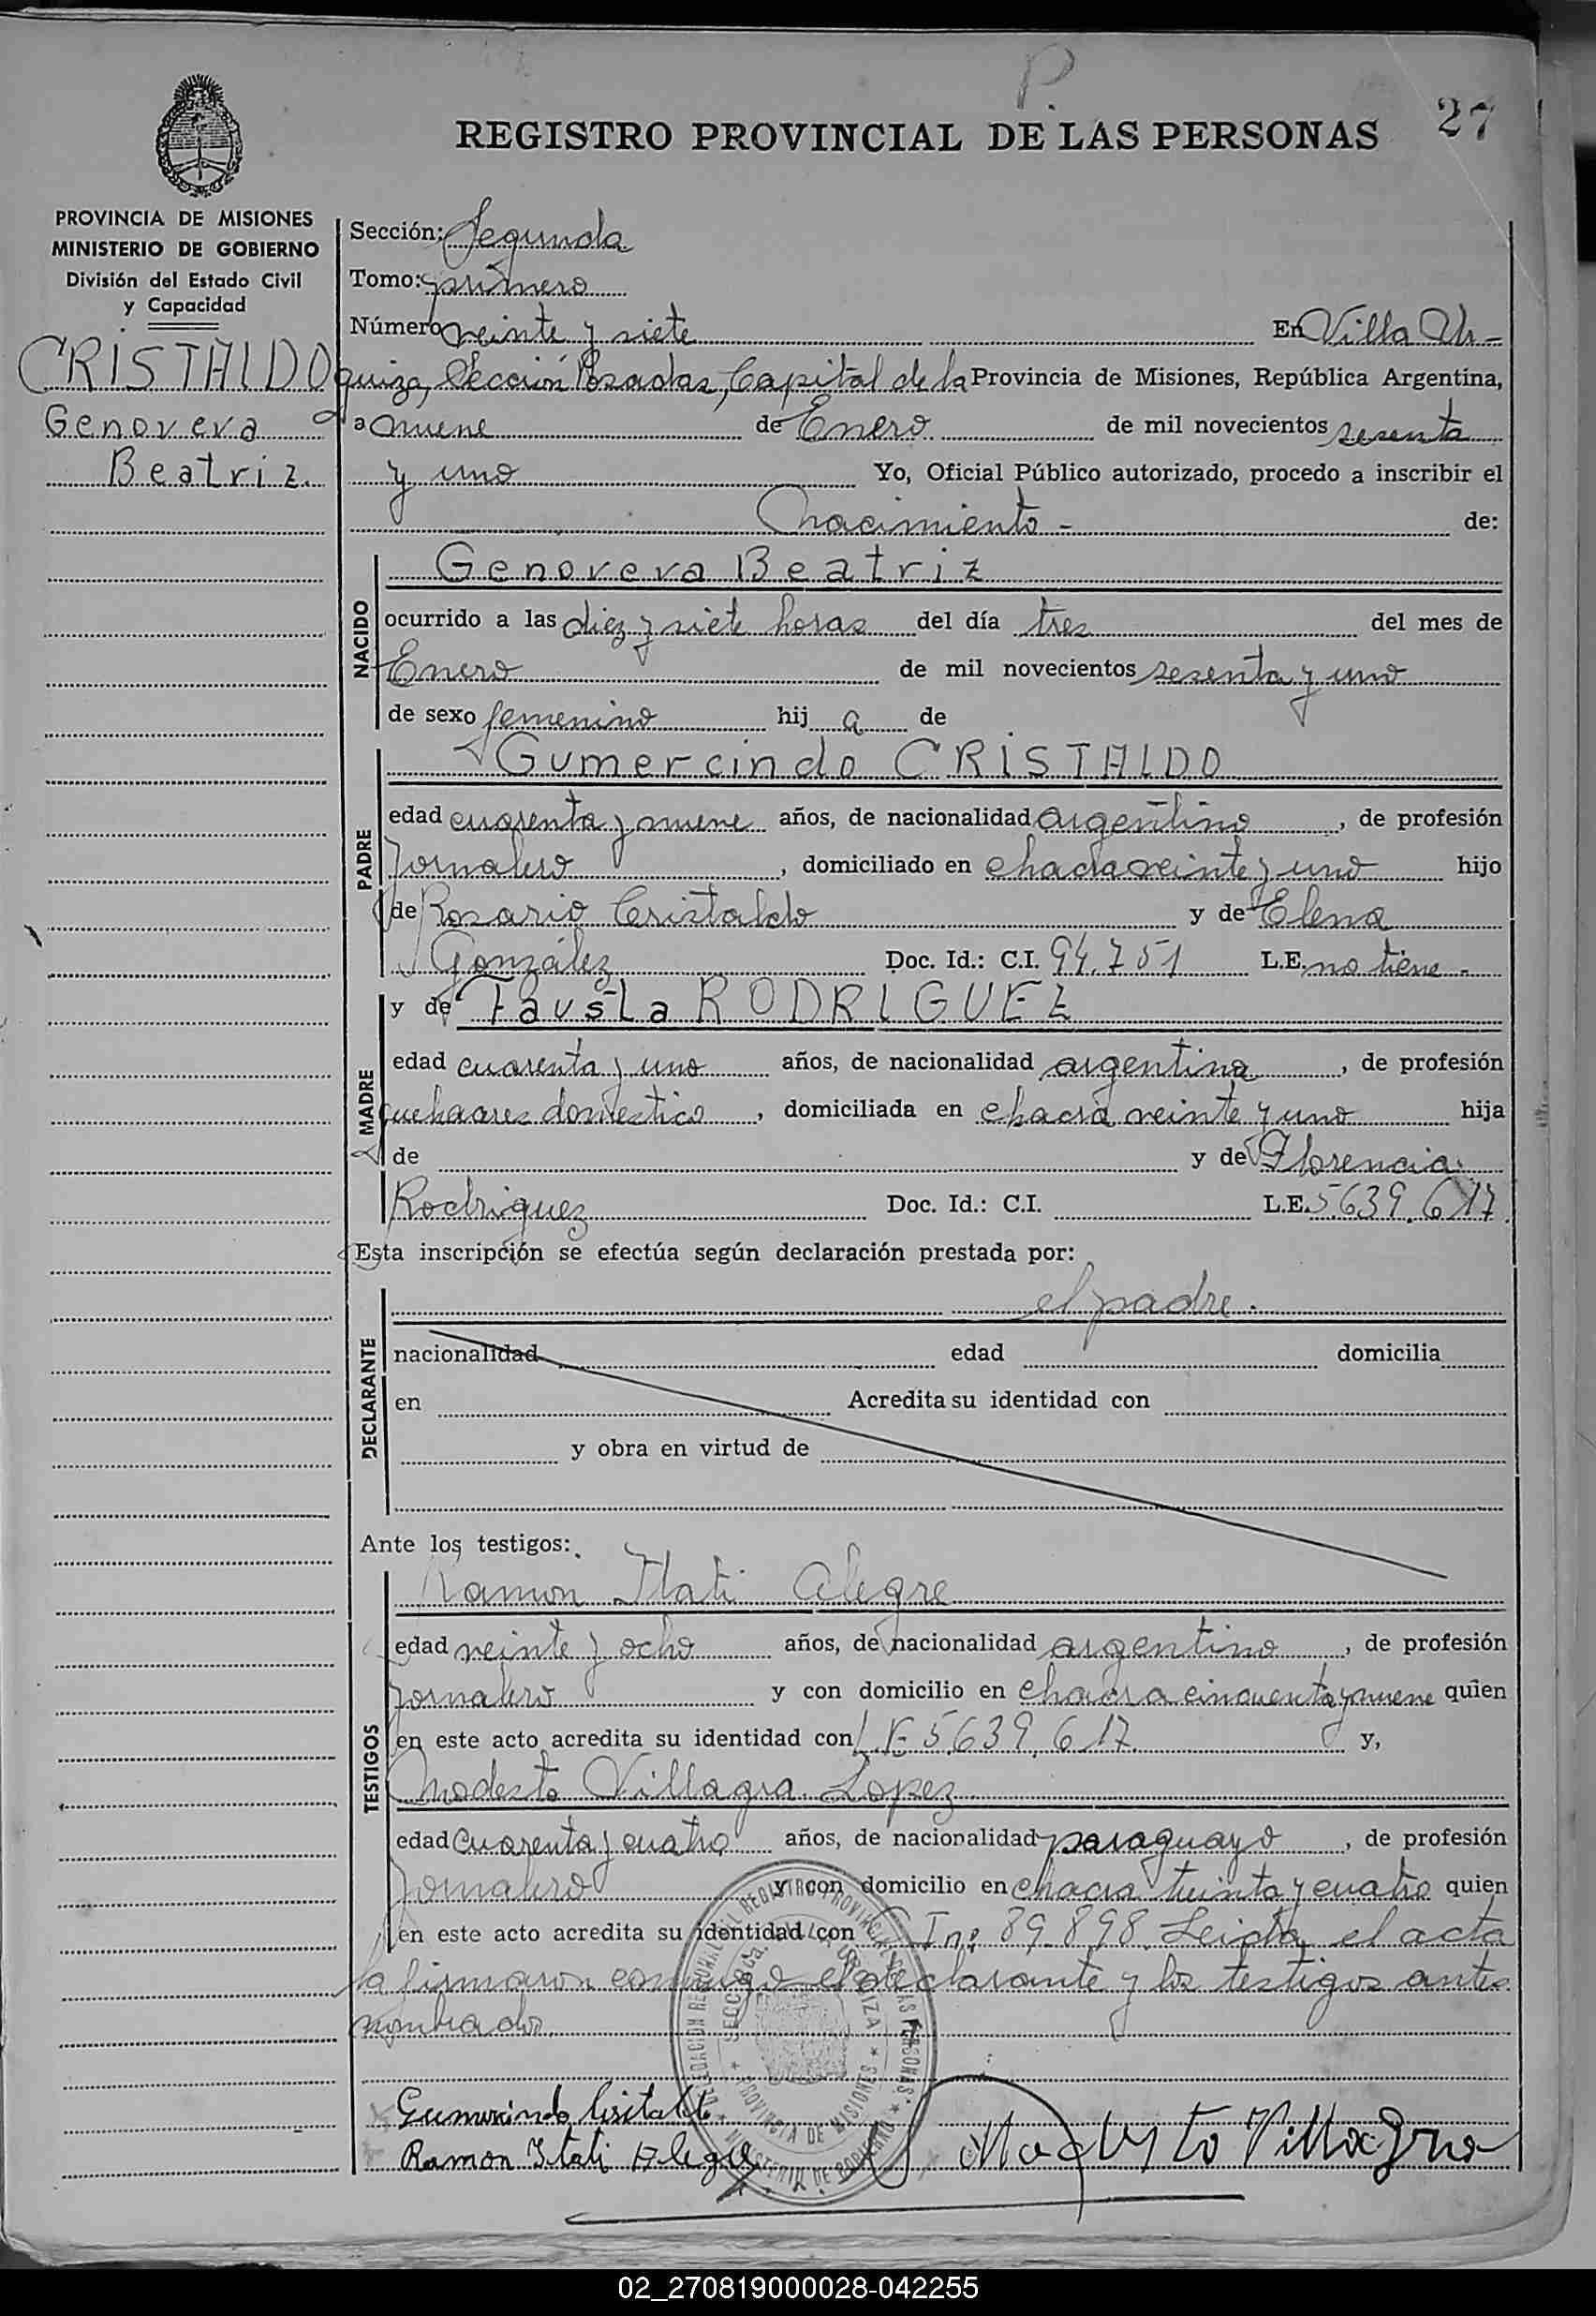 P.
27
REGISTRO PROVINCIAL DE LAS PERSONAS
PROVINCIA DE MISIONES
MINISTERIO DE GOBIERNO
División del Estado Civil
y Capacidad
CRISTALDO
Genoveva
Beatriz.
Sección: Segunda
Tomo: primero
Número veinte y siete En Villa Ur-
quiza, Sección Posadas, Capital de la Provincia de Misiones, República Argentina,
a nueve de Enero de mil novecientos sesenta
y uno Yo, Oficial Público autorizado, procedo a inscribir el
Nacimiento - de:
NACIDO
Genoveva Beatriz
ocurrido a las diez y siete horas del día tres del mes de
Enero de mil novecientos sesenta y uno
de sexo femenino hij a de
PADRE
Gumercindo CRISTALDO
edad cuarenta y nueve años, de nacionalidad argentino, de profesión
Jornalero, domiciliado en chacra veinte y uno hijo
de Rosario Cristaldo y de Elena
González Doc. Id.: C.I. 94.751 L.E. no tiene -
MADRE
y de Fausta RODRIGUEZ
edad cuarenta y uno años, de nacionalidad argentina, de profesión
quehaares domestico, domiciliada en chacra veinte y uno hija
de y de Florencia
Rodriguez Doc. Id.: C.I. L.E. 5.639.617
Esta inscripción se efectúa según declaración prestada por:
DECLARANTE
el padre.
nacionalidad edad domicilia
en Acredita su identidad con
y obra en virtud de
Ante los testigos:
TESTIGOS
Ramon Itati Alegre
edad veinte y ocho años, de nacionalidad argentino, de profesión
Jornalero y con domicilio en chacra cincuenta y nueve quien
en este acto acredita su identidad con L.E. 5.639.617 y,
Modesto Villagra Lopez
edad cuarenta y cuatro años, de nacionalidad paraguayo, de profesión
Jornalero y con domicilio en chacra treinta y cuatro quien
en este acto acredita su identidad con C I nº 89.898. Leida el acta
la firmaron conmigo el declarante y los testigos antes
nombrados.
Gumercindo Cristaldo
Ramon Itati Alegre
Modesto Villagra
02_270819000028-042255